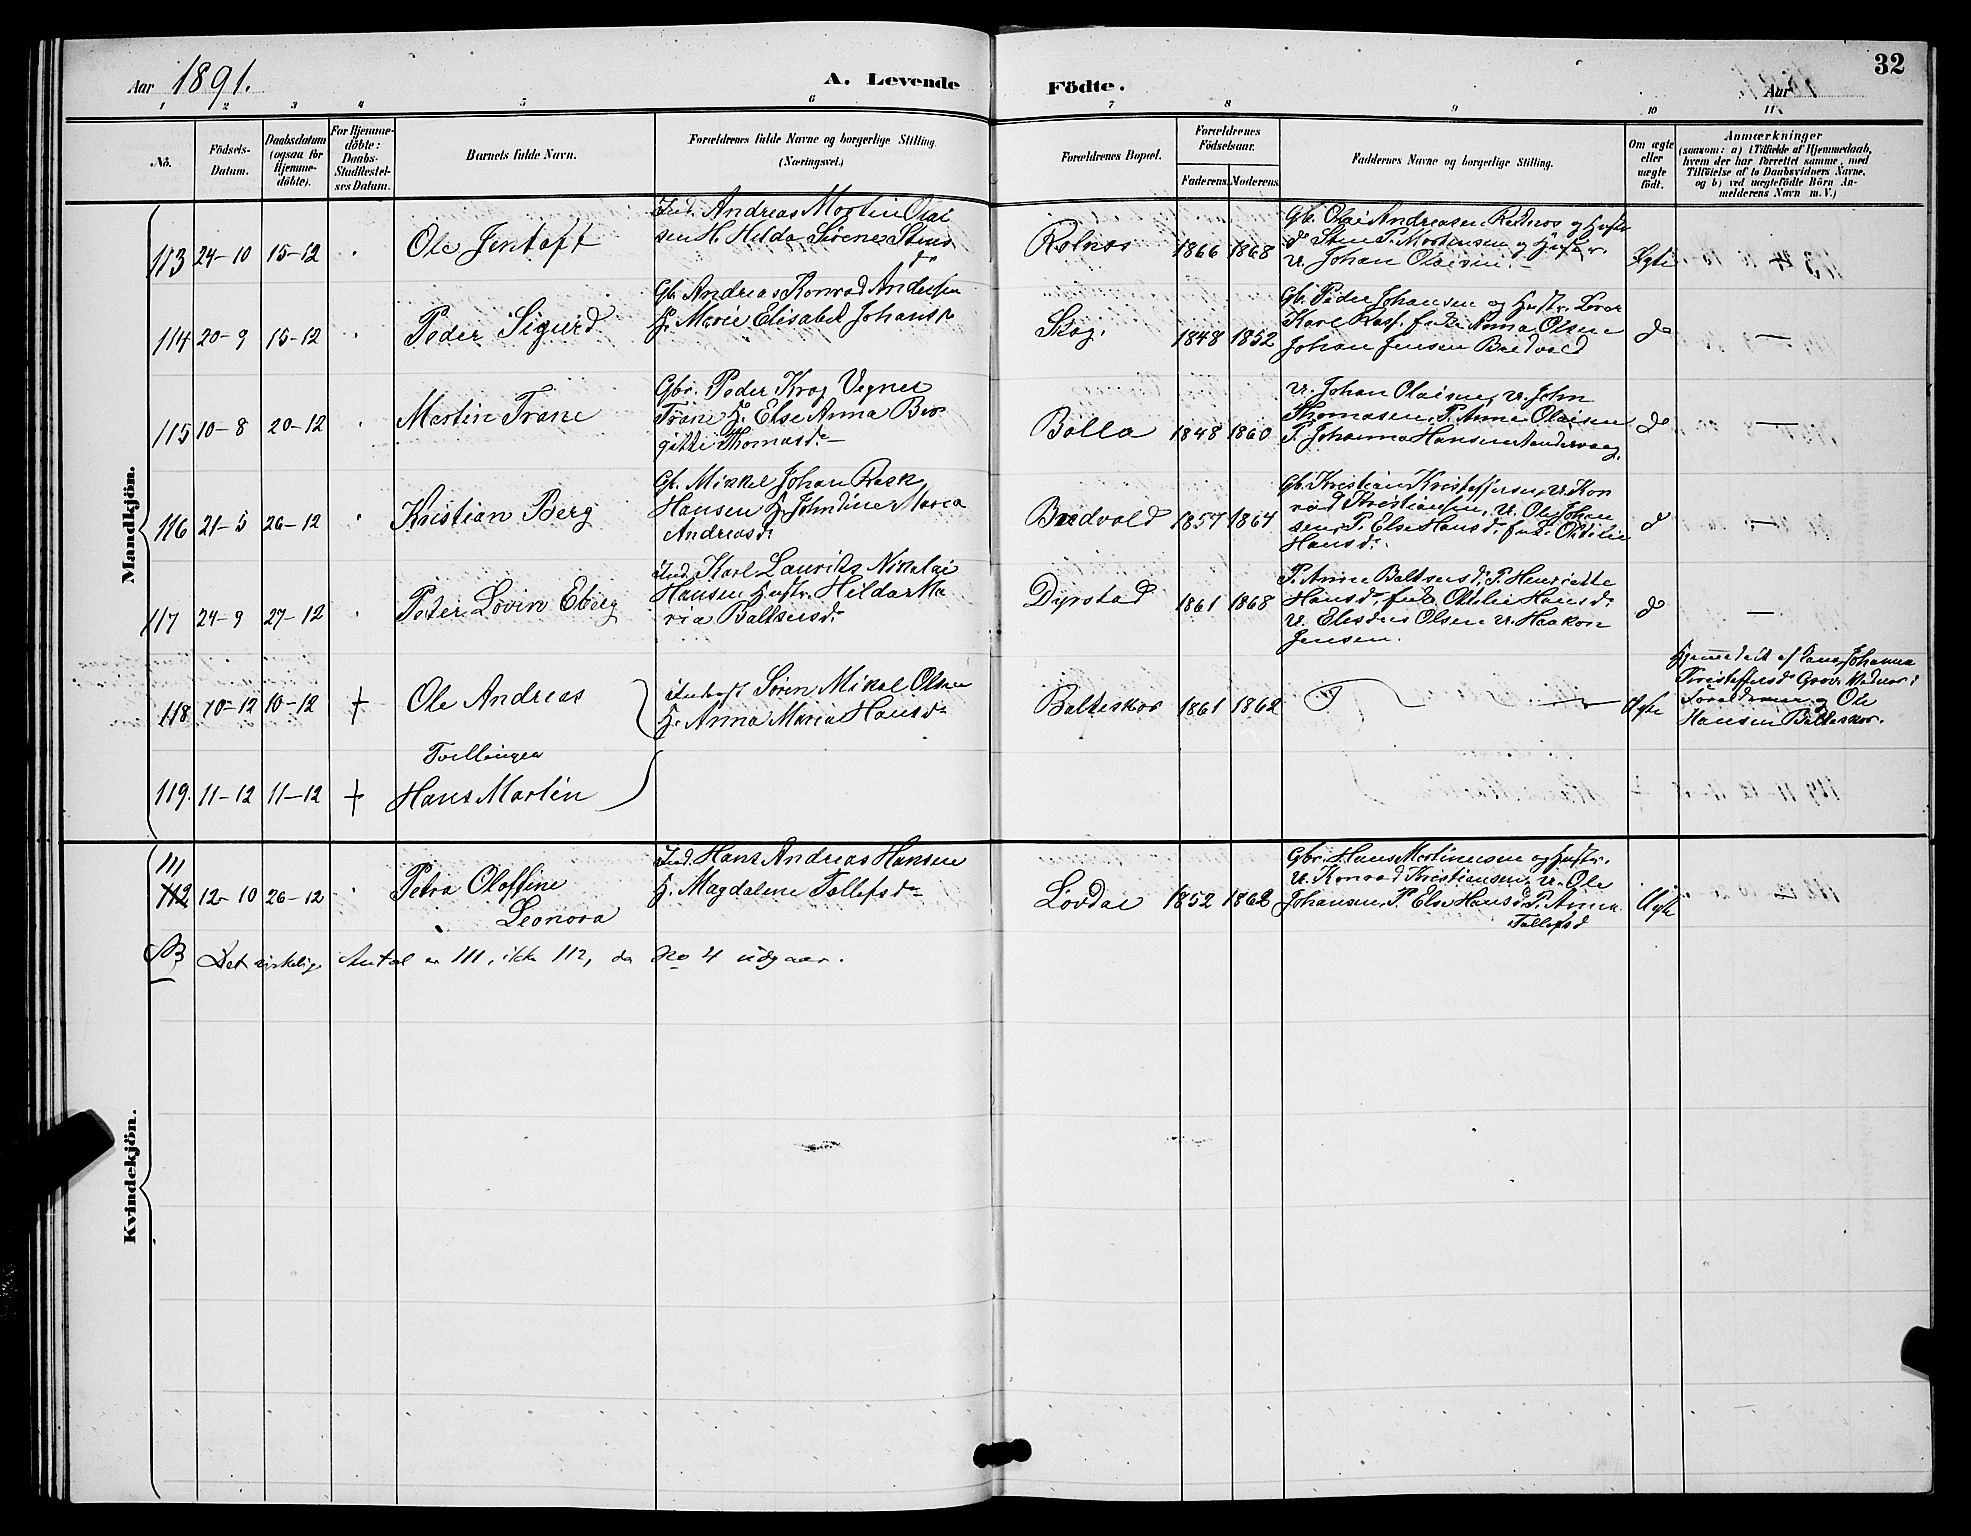 Aar 1891.
A. Levende
Födte.
Aar
32
1 2 3 4 5 6 7 8 9 10 11
No.
Födsels-
Datum.
Daabsdatum
(ogsaa for
Hjemme-
döbte).
For Hjemme-
döbte:
Daabs-
Stadfæstel-
ses Datum.
Barnets fulde Navn.
Forældrenes fulde Navne og borgerlige Stilling
(Næringsvei.)
Forældrenes Bopæl.
Forældrenes
Födselsaar.
Faderens. Moderens.
Faddernes Navne og borgerlige Stilling.
Om ægte
eller
uægte
födt.
Anmærkninger
(saasom: a) i Tilfælde af Hjemmedaab,
hvem der har forrettet samme, med
Tilföielse af to Daabsvidners Navne,
og b) ved uægtefödte Börn An-
melderens Navn m. V.)
Mandkjön.
113 24-10 15-12
Ole Jentoft
Ind. Andreas Martin Olai
sen H. Hilda Sørene Stens
dr
Rolnes 1866 1868
Gb. Olai Andreasen Rednes og Hustr
d Sten P. Mortensen og Hustr.
U. Johan Olaisen
Ægte
114 20-9 15-12
Peder Sigurd
Gb. Andreas Konrad Andersen
H. Marie Elisabet Johansd
Skog. 1848 1852
Gb. Peder Johansen og Hustr.
Karl Anna Olsen
Johan Jensen Bredvold
do
115 10-8 20-12
Martin Trane
Gbr. Peder Krog Vegner
Trane H. Else Anna Bir
gitte Thomasdr
Bolla 1848 1860
U. Johan Olaisen, U. John
Thomasen, P. Anne Olaisen
P. Johanna Hansen Sandervaag.
do
116 21-5 26-12
Kristian Berg
Gb. Mikkel Johan Rask
Hansen H. Johndine Maria
Andreasdr
Bredvold 1857 1864
Gb. Kristian Kristoffersen, U. Kon
rad Kristiansen, U. Ole Johan
sen, P. Else Hansd. Ottilie
Hansdr.
do
117 24-9 27-12
Peder Lovin Eberg
Ind. Karl Lauritz Nikolai
Hansen Hustr. Hilda Ma
ria Baltsersdr
Dyrstad 1861 1868
P. Anne Baltsersd. P. Henriette
Hansd. Ottilie Hansd.
U. Elesæus Olsen U. Haakon
Jensen.
do
118 10-12 10-12 +
Ole Andreas
Indrst Søren Mikal Olsen
H. Anna Maria Hansdr
Balteskar 1861 1862
Ægte
Hjemmedøbt af Johanna
Kristoffersd Grov
Forældrene og Ole
Hansen Balteskar.
Tvillinger
119. 11-12 11-12 +
Hans Martin
Kvindekjön.
111
112 12-10 26-12
Petra Oloffine
Leonora
Ind. Hans Andreas Hansen
H. Magdalene Tollefsdr
Løvdal 1852 1862
Gbr. Hans Martinussen og Hustr.
U. Konrad Kristiansen, U. Ole
Johansen, P. Else Hansd, P. Anna
Tollefsd
Ægte
NB Det virkelige Antal er 111, ikke 112, da No 4 udgaar.